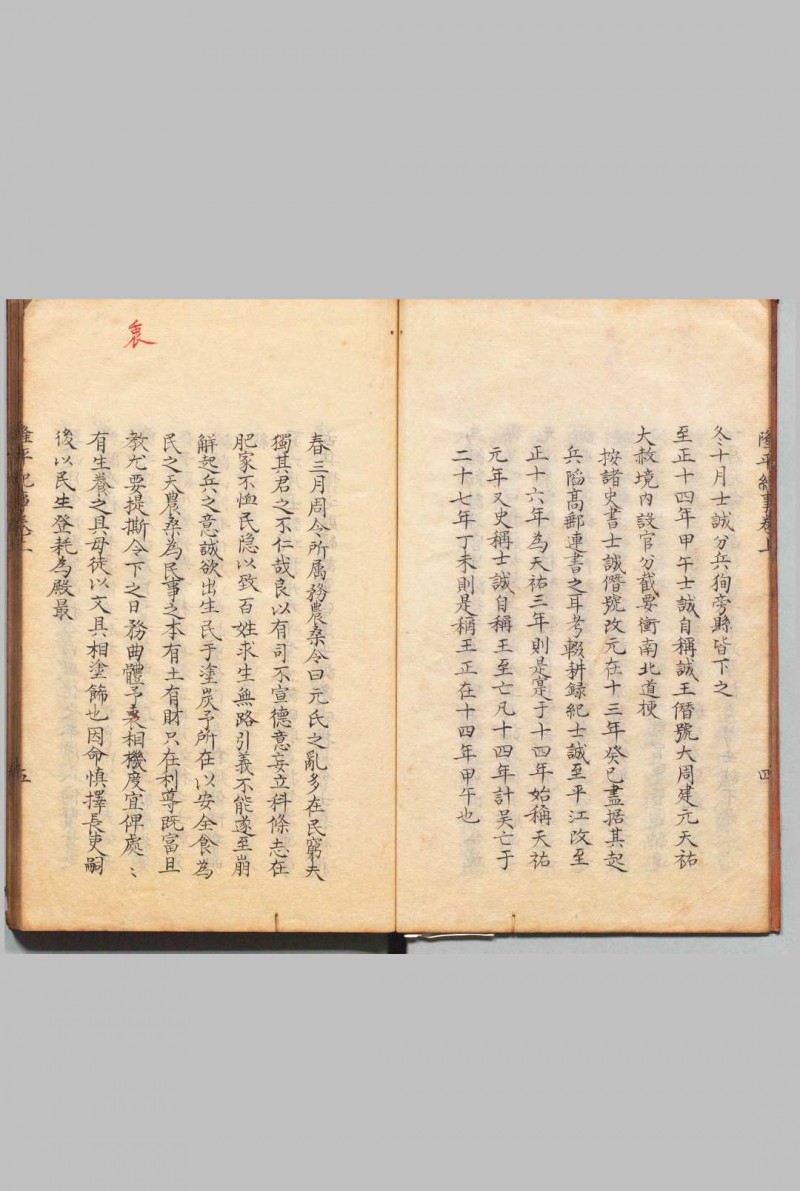 隆平紀事卷上
四
冬十月士誠分兵狥旁縣皆下之
至正十四年甲午士誠自稱誠王僭號大周建元天祐
大赦境內設官分截要衝南北道梗
按諸史書士誠僭號改元在十三年癸巳葢据其起
兵䧟高郵連書之耳考輟耕録紀士誠至平江改至
正十六年為天祐三年則是寔于十四年始稱天祐
元年又史稱士誠自稱王至亡凡十四年計吴亡于
二十七年丁未則是稱王正在十四年甲午也
春三月周令所属務農桑令曰元氏之亂多在民窮夫
獨其君之不仁哉良以有司不宣德意妄立科條志在
肥家不恤民隐以致百姓求生無路引義不能遂至崩
解起兵之意誠欲出生民于塗炭予所在以安全食為
民之天農桑為民事之本有土有財只在利導既富且
教尤要提撕令下之日務曲體予衷相機度宜俾處〻
有生養之具毋徒以文具相塗飾也因命慎擇長吏嗣
後以民生登耗為殿最
衷
隆平紀事卷上
五